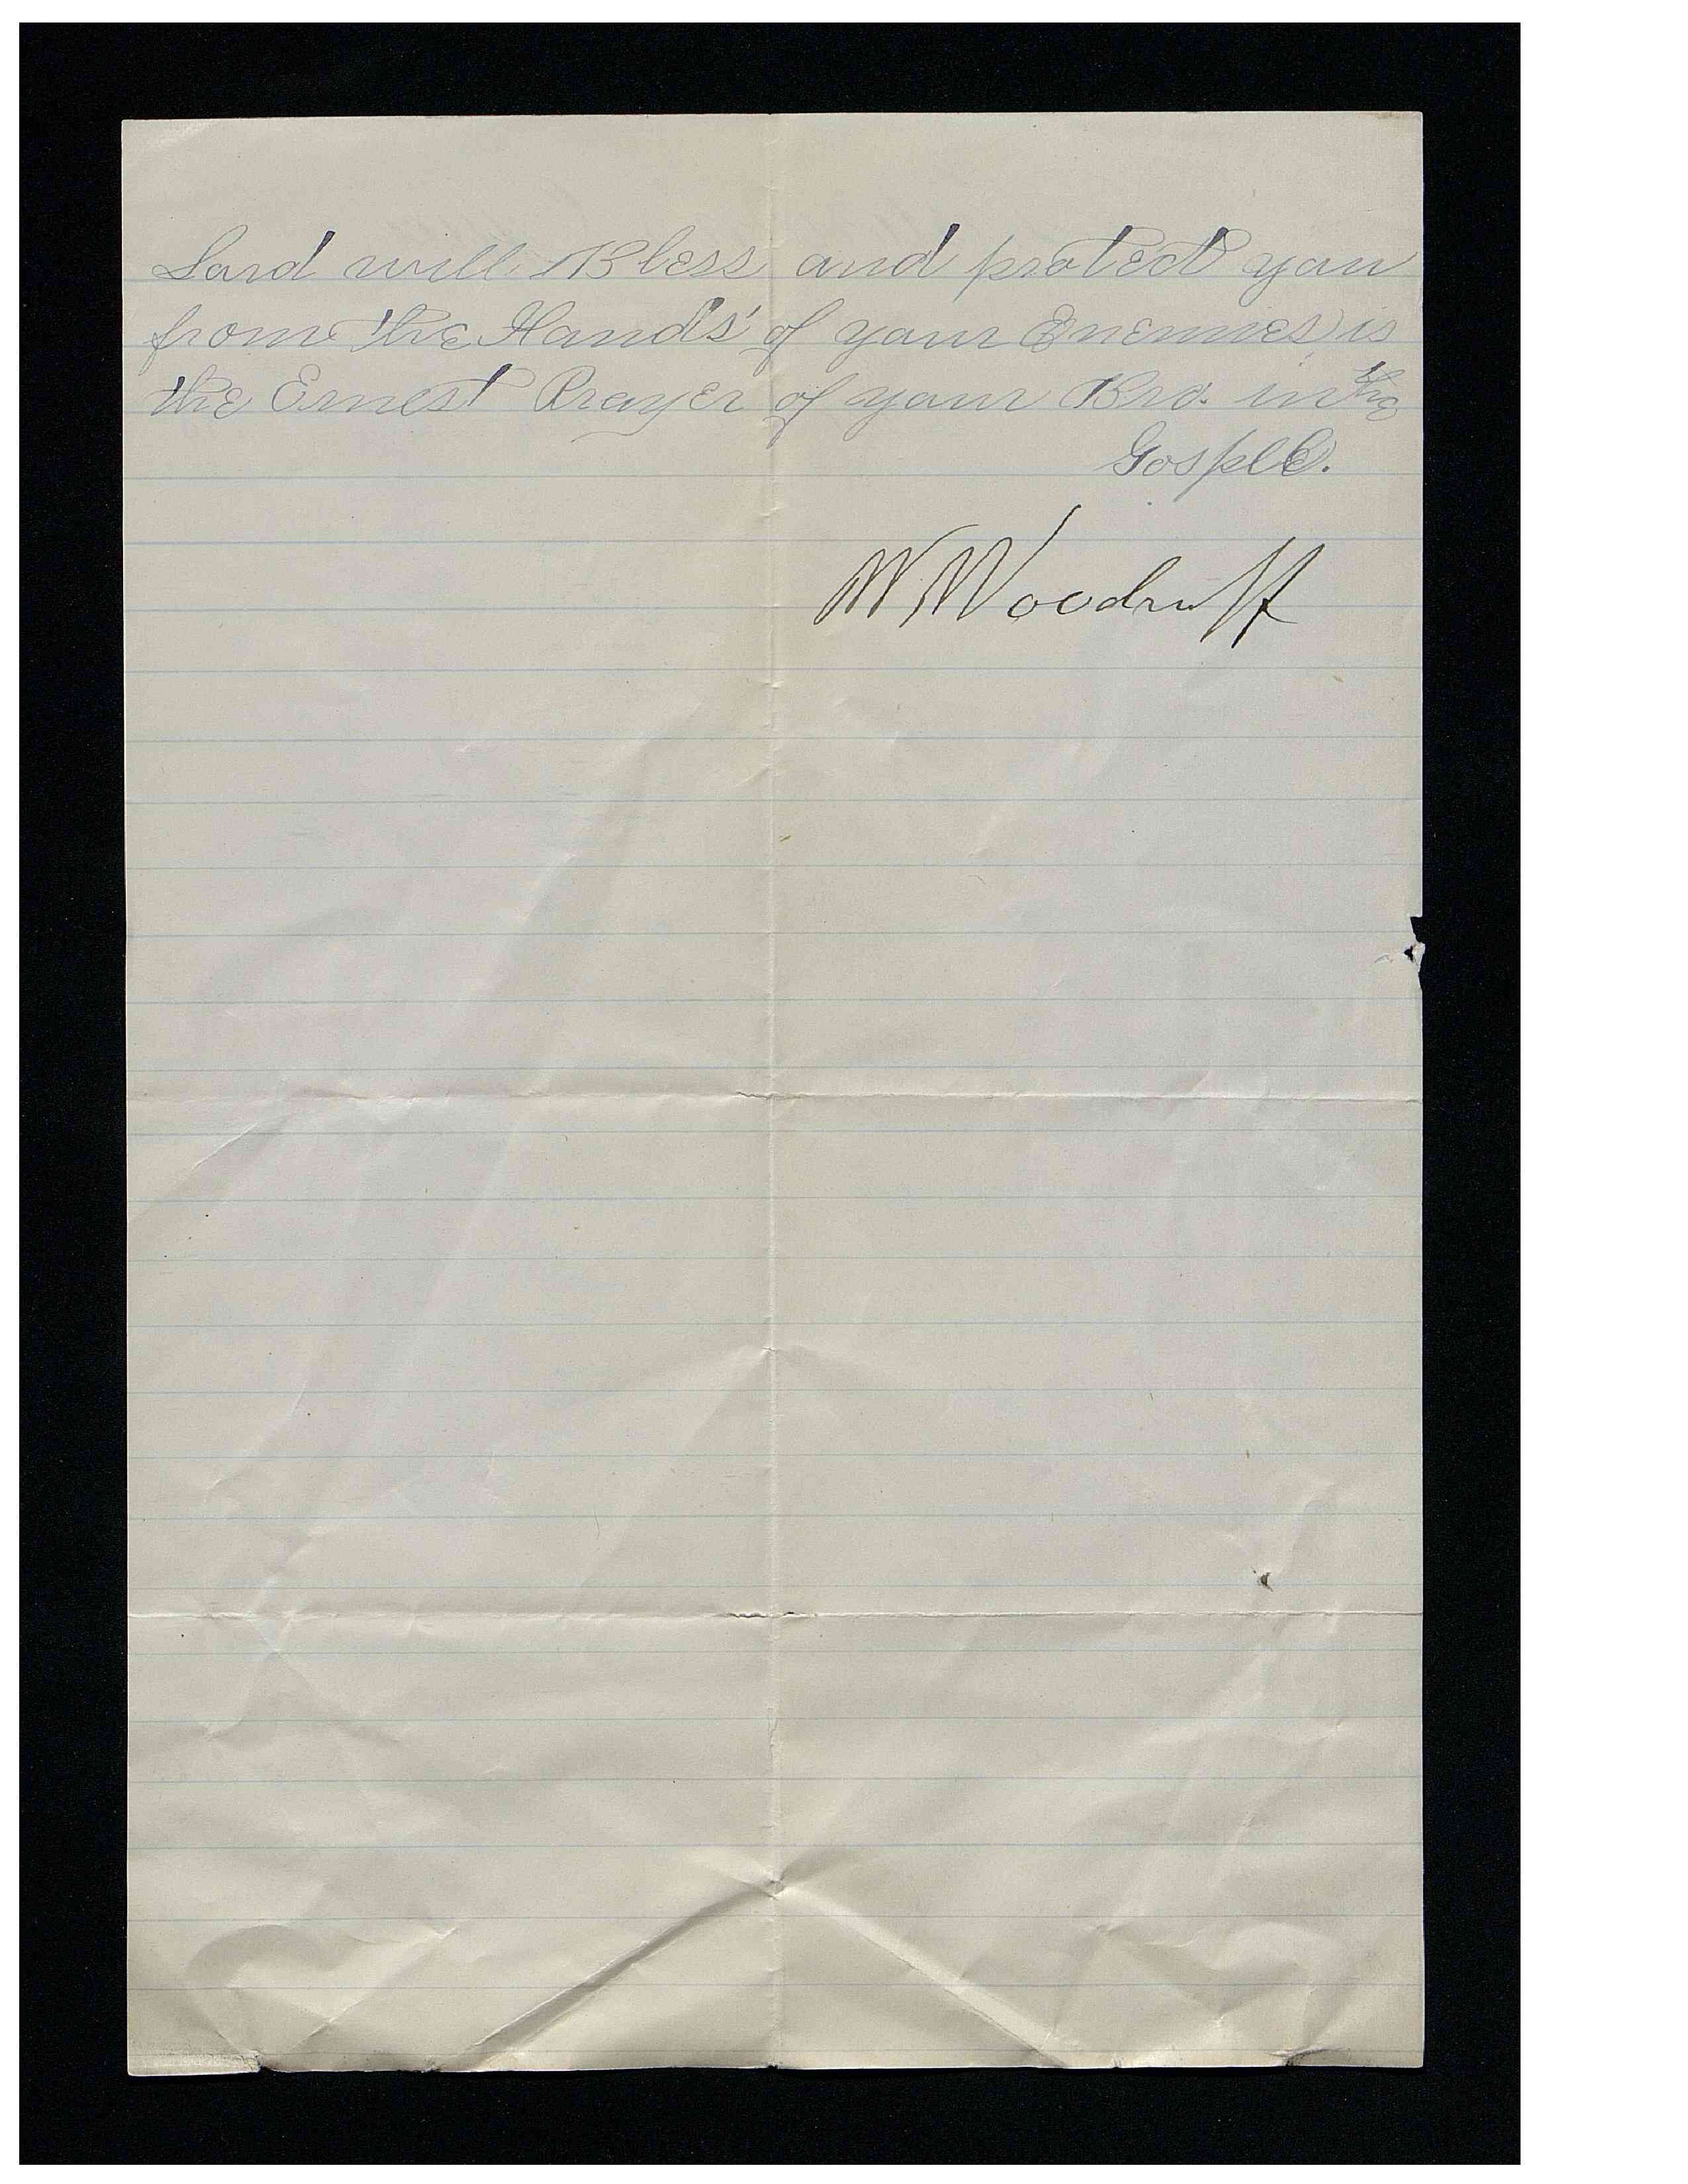 Lord will Bless and protect you
from the Hands of your Enemies is
the Ernest Prayer of your Bro. in the
Gosple.
W Woodruff